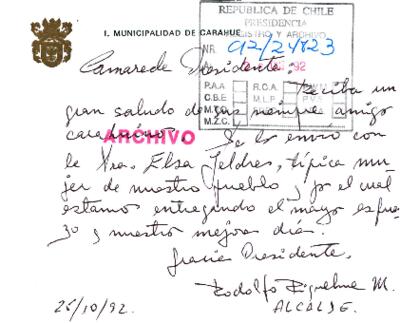 I. MUNICIPALIDAD DE CARAHUE
REPUBLICA DE CHILE
PRESIDENCIA
REGISTRO Y ARCHIVO
NR. 92/24823
A: 92
P.A.A. R.C.A.
C.B.E. M.L.P. P.V.S.
M.T.O.
M.Z.C.
ARCHIVO
Camarada Presidente:
Reciba un
gran saludo de sus siempre amigos
carahuinos. Se lo envío con
la Sra. Elsa Jeldres, típica mu-
jer de nuestro pueblo y por el cual
estamos entregando el mayor esfuer-
zo y nuestros mejores días.
Gracias Presidente.
Rodolfo Riquelme M.
ALCALDE.
26/10/92.